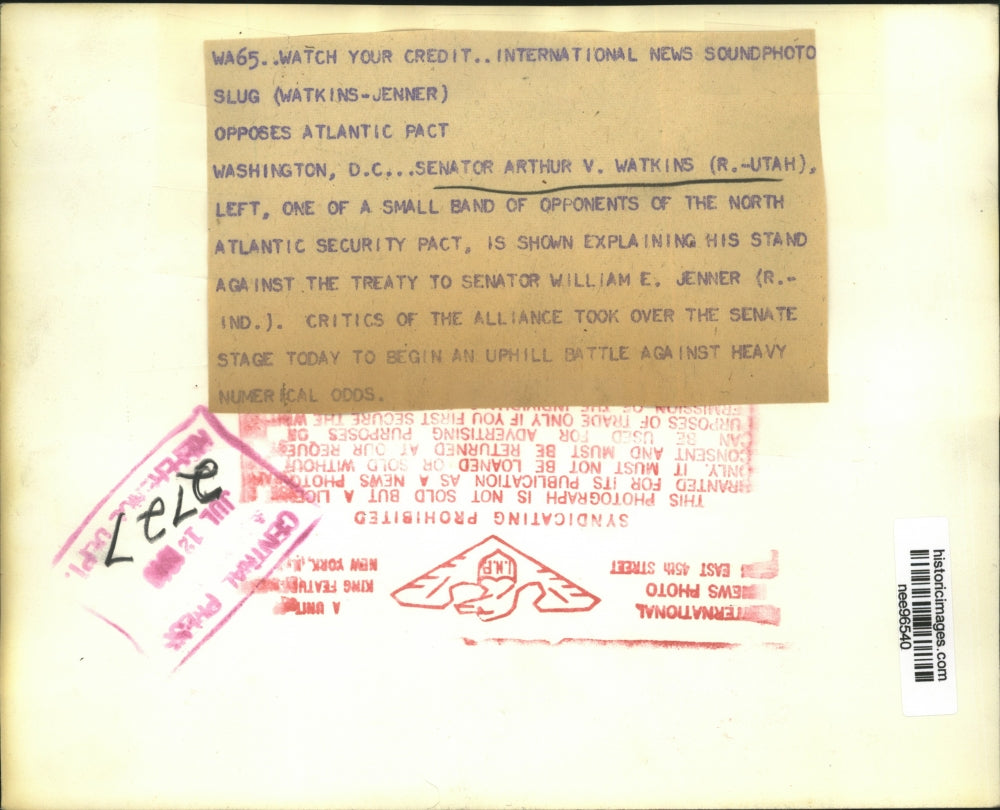 WA65..WATCH YOUR CREDIT..INTERNATIONAL NEWS SOUNDPHOTO
SLUG (WATKINS-JENNER)
OPPOSES ATLANTIC PACT
WASHINGTON, D.C...SENATOR ARTHUR V. WATKINS (R.-UTAH),
LEFT, ONE OF A SMALL BAND OF OPPONENTS OF THE NORTH
ATLANTIC SECURITY PACT, IS SHOWN EXPLAINING HIS STAND
AGAINST THE TREATY TO SENATOR WILLIAM E. JENNER (R.-
IND.). CRITICS OF THE ALLIANCE TOOK OVER THE SENATE
STAGE TODAY TO BEGIN AN UPHILL BATTLE AGAINST HEAVY
NUMERICAL ODDS.
CENTRAL PRESS
JUL 12
REFERENCE DEPT.
2727
TERNATIONAL
EWS PHOTO
EAST 45th STREET
I.N.P.
A UNIT
KING FEATURE
NEW YORK, N.
SYNDICATING PROHIBITED
THIS PHOTOGRAPH IS NOT SOLD BUT A LICE
RANTED FOR ITS PUBLICATION AS A NEWS PHOTOGRAPH
ONLY. IT MUST NOT BE LOANED OR SOLD WITHOUT
CONSENT AND MUST BE RETURNED AT OUR REQUES
CAN BE USED FOR ADVERTISING PURPOSES OR
URPOSES OF TRADE ONLY IF YOU FIRST SECURE THE WRIT
ERMISSION OF THE INDIVIDU
historicimages.com
nee96540